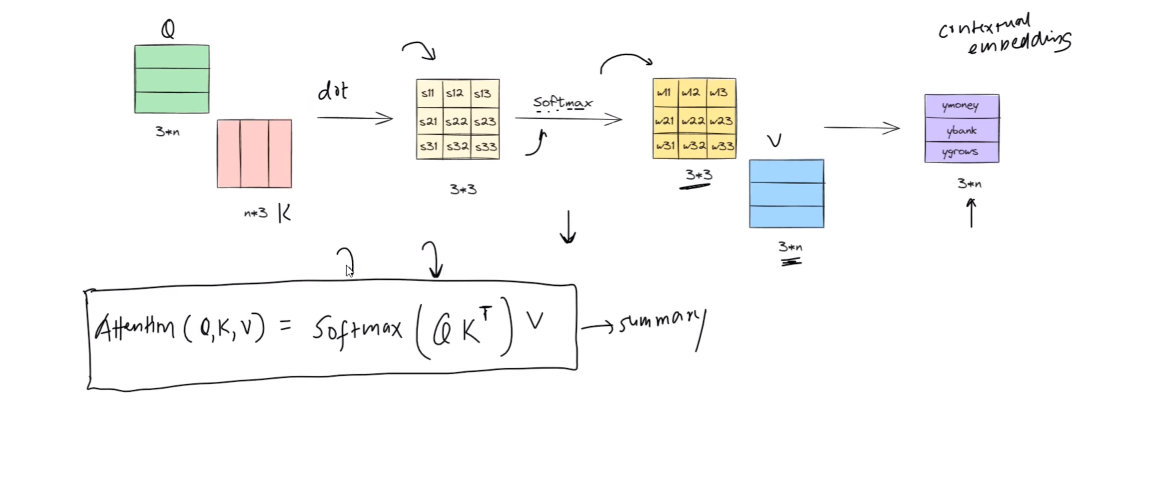 Q
3*n
n*3 K
dot
s11 s12 s13
s21 s22 s23
s31 s32 s33
3*3
softmax
w11 w12 w13
w21 w22 w23
w31 w32 w33
3*3
V
3*n
contextual
embedding
ymoney
ybank
ygrows
3*n
Attention (Q,K,V) = Softmax (QK^T) V
summary